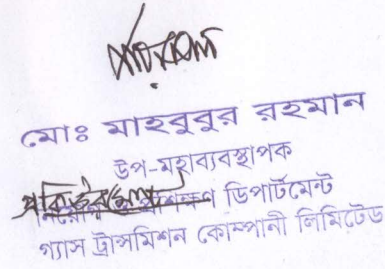 মোঃ মাহবুবুর রহমান
উপ-মহাব্যবস্থাপক
প্রশিক্ষণ ডিপার্টমেন্ট
গ্যাস ট্রান্সমিশন কোম্পানী লিমিটেড